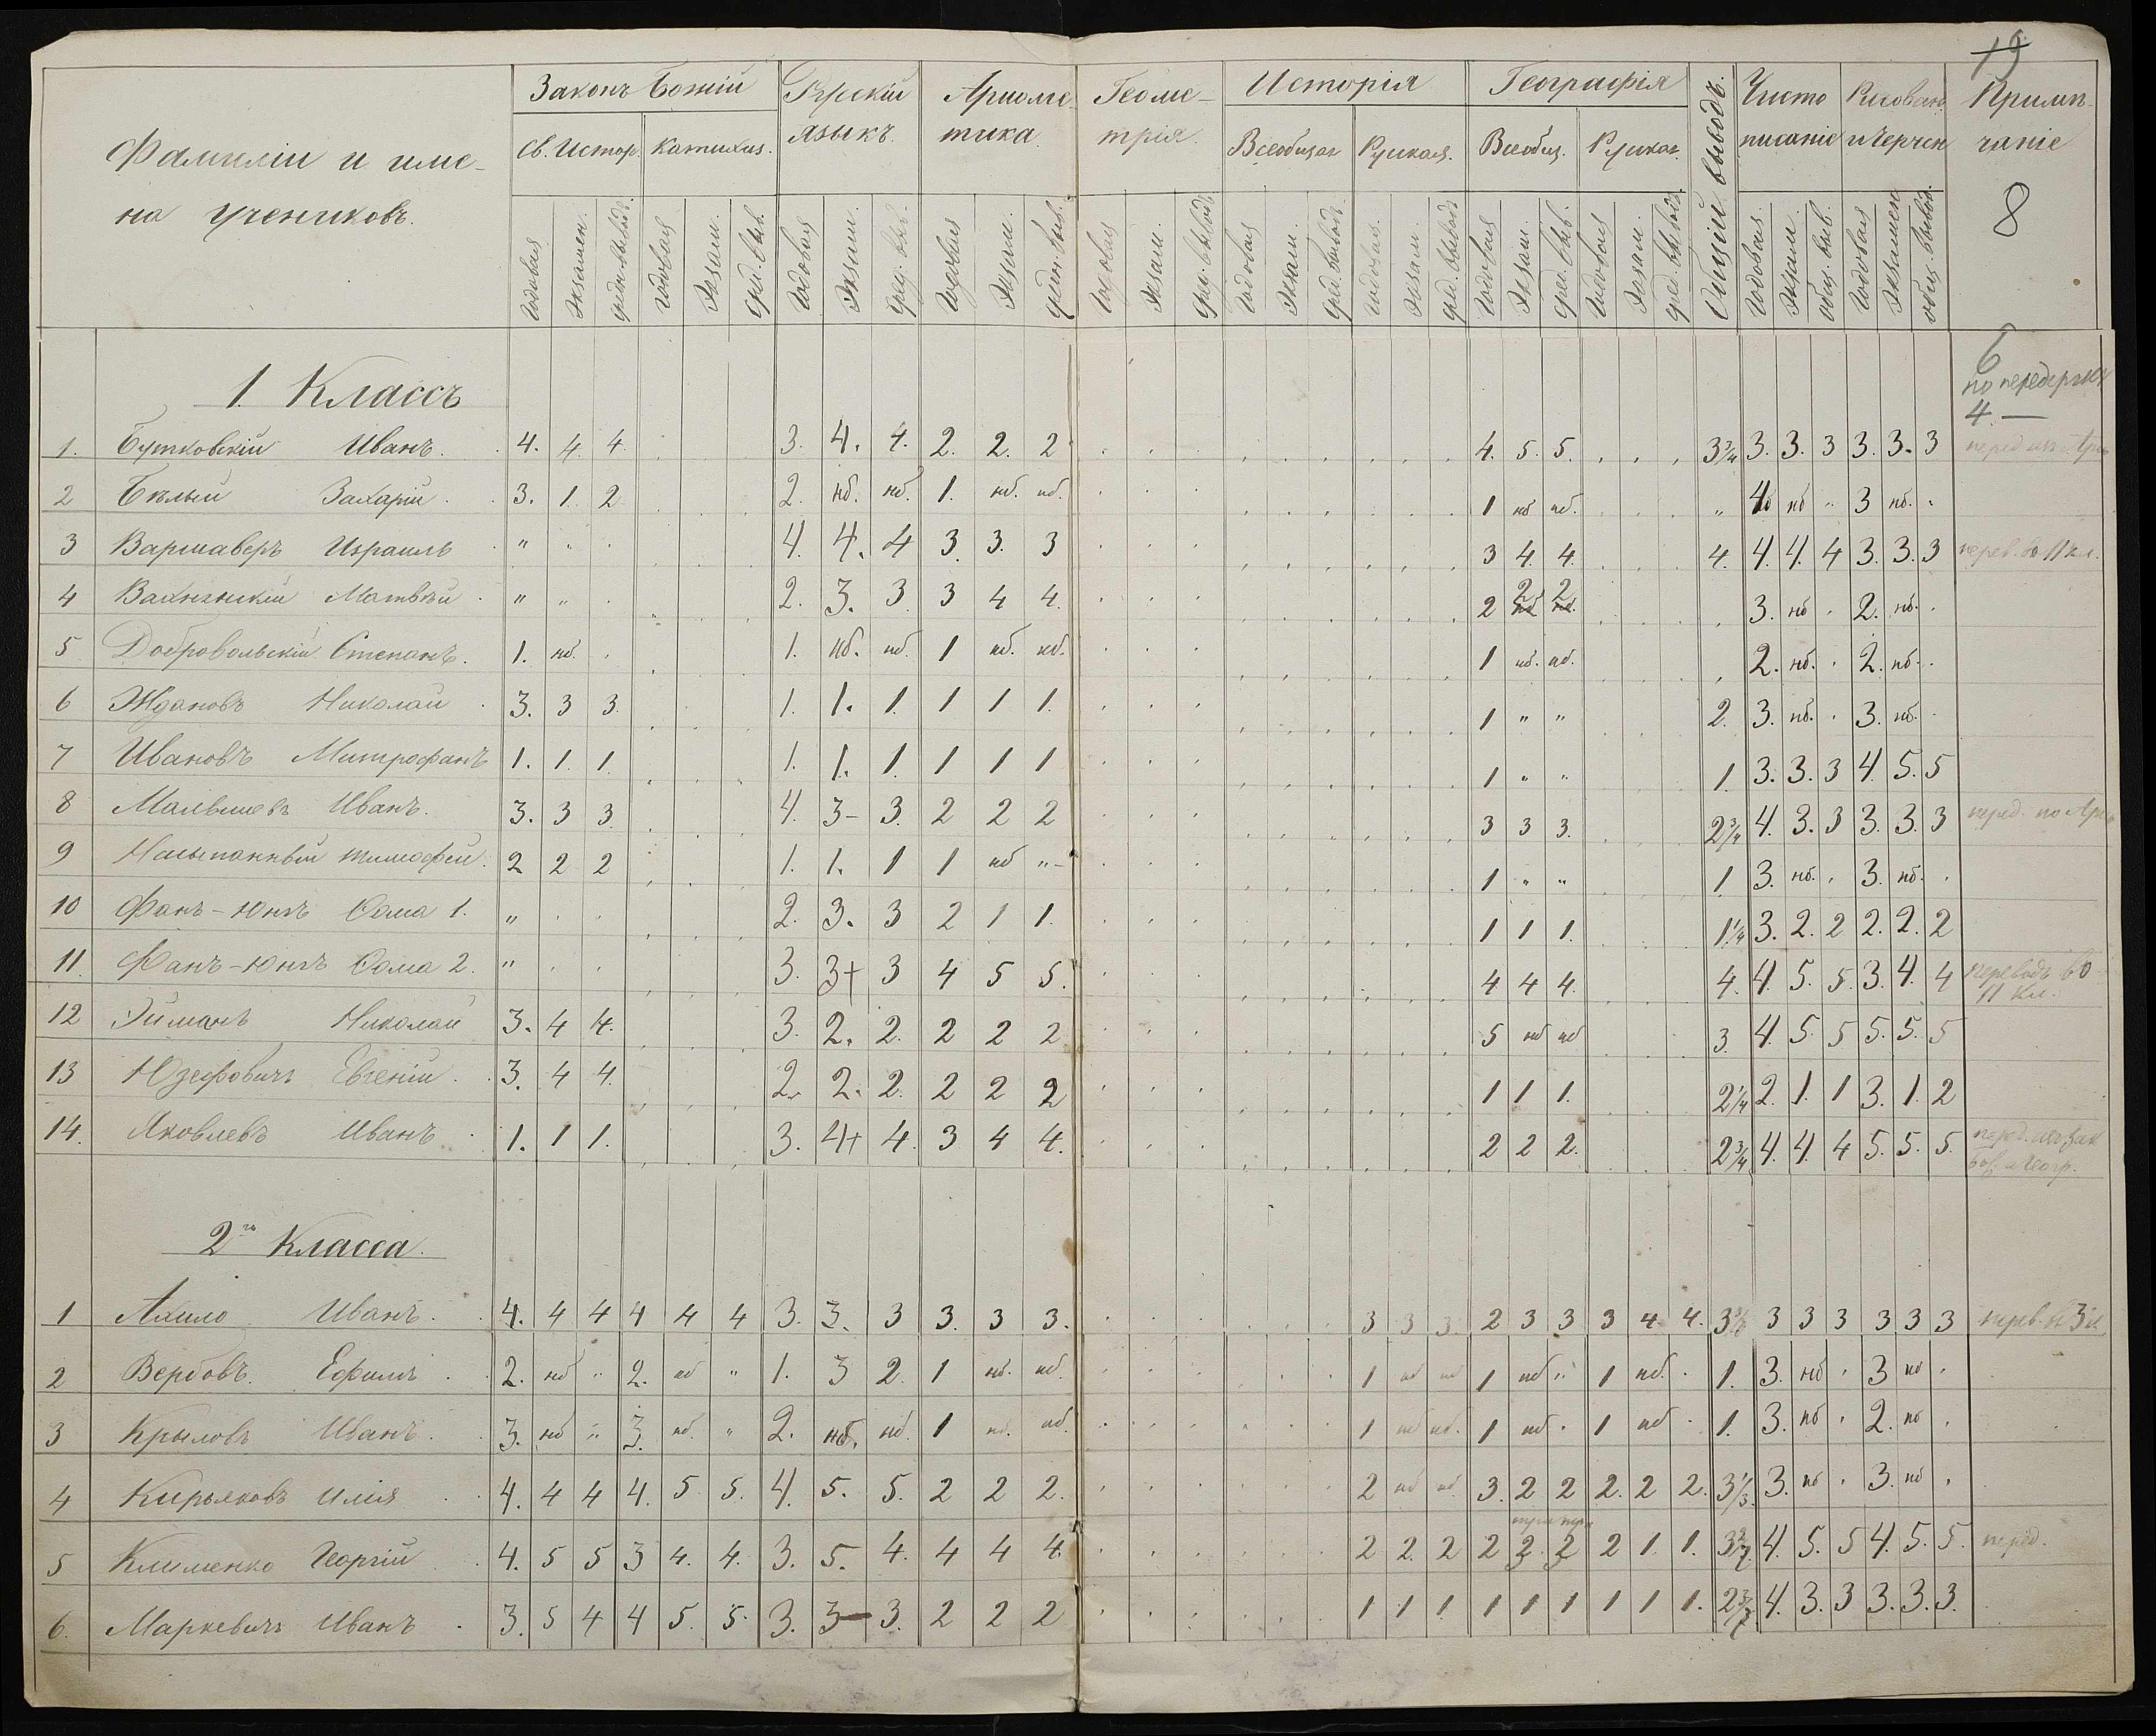 19
Фамиліи и име-
на учениковъ.
Законъ Божій
Русскій
языкъ
Ариѳме-
тика
Геоме-
трія
Исторія
Географія
Общій выводъ.
Чисто
писаніе
Рисован.
и Черчен
Примѣ-
чаніе
8
Св. Истор. Катихиз.
Всеобщая Русская. Всеобщ. Русская
Годовая Экзамен. Годовая Экзам. Годовая Экзам. сред. выв. Годовая Экзам.
Годовая Экзам. сред. выводъ Годовая Экзам. сред. выводъ Годовая Экзам. сред. выводъ Годовая Экзам. сред. выв. Годовая Экзам. сред. выводъ Годовая Экзам. общ. выв. Годовая Экзамен общ. вывод.
1. Классъ
6
по передержкѣ
4. —
1. Бутковскій Иванъ. 4. 4. 4. 3. 4. 4. 2. 2. 2. 4. 5. 5. 3 3/4 3. 3. 3 3. 3. 3
2 Бѣлый Захарій. 3. 1. 2 2. нб. нб. 1. нб. нб. 1 нб нб. " нб " 3 нб.
3 Варшаверъ Израиль " " 4. 4. 4 3. 3. 3 3 4. 4. 4. 4. 4. 4 3. 3. 3 перев. во II кл.
4 Матвѣй " " 2. 3. 3. 3 4 4. 2 2 2 3. нб 2. нб.
5 Добровольскій Степанъ. 1. нб. 1. нб. нб. 1 нб. нб. 1 нб. нб. 2. нб. 2. нб.
6 Ждановъ Николай 3. 3 3. 1. 1. 1. 1 1 1. 1 " " 2. 3. нб. 3. нб.
7 Ивановъ Митрофанъ 1. 1. 1. 1. 1. 1. 1 1 1 1 " " 1. 3. 3. 3 4. 5. 5
8 Малышевъ Иванъ. 3. 3 3. 4. 3- 3. 2 2 2 3 3 3. 2 3/4 4. 3. 3 3. 3. 3
9 Тимофей. 2 2 2 1. 1. 1 1 нб " 1 " " 1 3. нб. 3. нб.
10 Фанъ-Юнгъ Сома 1. " 2. 3. 3 2 1 1. 1 1 1. 1 1/4 3. 2. 2 2. 2. 2
11. Фанъ-Юнгъ Сома 2. " 3. 3+ 3 4 5 5. 4 4 4. 4. 4. 5. 5. 3. 4. 4 переводъ во
II кл.
12 Эйманъ Николай 3. 4 4. 3. 2. 2. 2 2 2 5 нб нб 3. 4. 5. 5 5. 5. 5
13 Юзефовичъ Евгеній 3. 4 4. 2. 2. 2. 2 2 2 1 1 1. 2 1/4 2. 1. 1 3. 1. 2
14. Яковлевъ Иванъ 1. 1 1. 3. 4+ 4. 3 4 4. 2 2 2. 2 3/4 4. 4. 4 5. 5. 5.
2го Класса.
1 Ахило Иванъ. 4. 4 4 4 4 4 3. 3. 3 3. 3 3. 3 3 3. 2 3 3 3 4 4. 3 3 3 3 3 3
2 Вербовъ. Ефимъ 2. нб " 2. нб " 1. 3 2. 1 нб. нб. 1 нб нб 1 нб " 1 нб. 1. 3. нб 3 нб
3 Крыловъ Иванъ. 3. нб " 3. нб. " 2. нб. нб. 1 нб. нб. 1 нб нб. 1 нб 1 нб 1. 3. нб 2. нб
4 Кирьяковъ Илія 4. 4 4 4. 5 5. 4. 5. 5. 2 2 2. 2 нб нб. 3. 2 2 2. 2 2. 3 1/3 3. нб 3. нб
три три
5 Клименко Георгій 4. 5 5 3 4. 4. 3. 5. 4. 4 4 4. 2 2. 2 2 2 1. 1. 4. 5. 5 4. 5. 5. перед.
6. Маркевичъ Иванъ 3. 5 4 4 5. 5. 3. 3- 3. 2 2 2 1 1 1 1 1 1 1 1 1. 4. 3. 3 3. 3. 3.